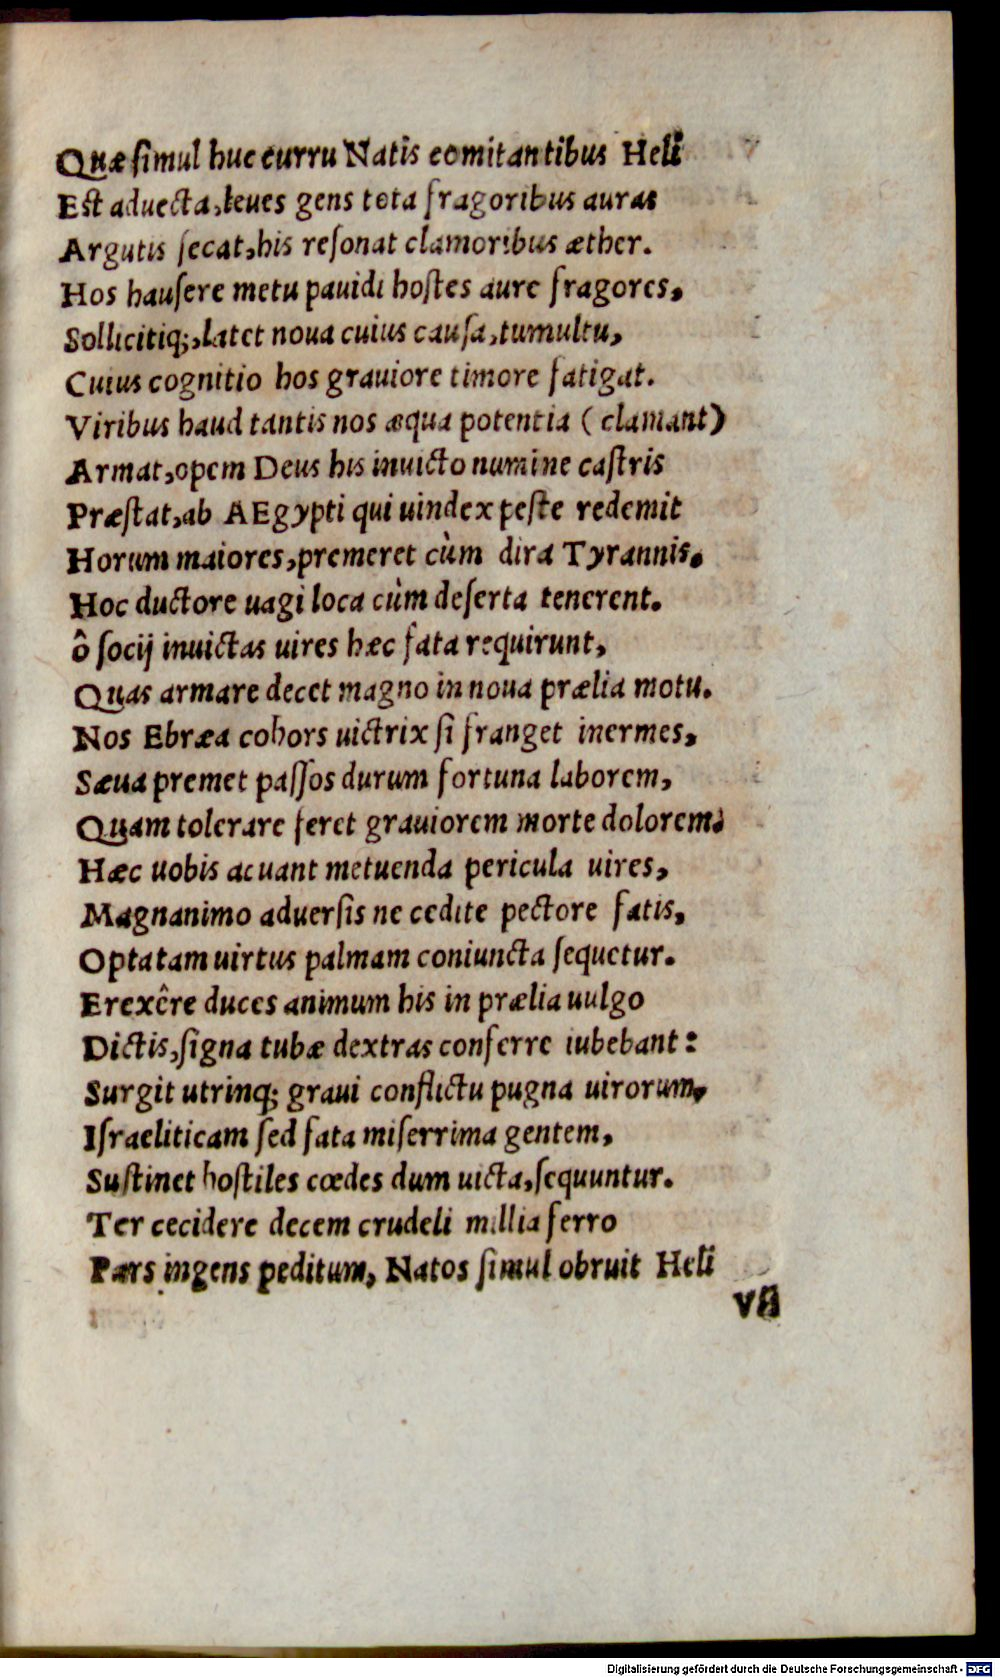 Quæ ſimul huc curru Natis comitantibus Heli
Est aduecta, leues gens tota fragoribus auras
Argutis ſecat, his reſonat clamoribus æther.
Hos hauſere metu pauidi hoſtes aure fragores,
Sollicitiq;, latet noua cuius cauſa, tumultu,
Cuius cognitio hos grauiore timore fatigat.
Viribus haud tantis nos æqua potentia ( clamant)
Armat, opem Deus his inuicto numine caſtris
Præſtat, ab AEgypti qui uindex peſte redemit
Horum maiores, premeret cùm dira Tyrannis.
Hoc ductore uagi loca cùm deſerta tenerent.
ô ſocij inuictas uires hæc fata requirunt,
Quas armare decet magno in noua prælia motu.
Nos Ebræa cohors uictrix ſi franget inermes,
Sæua premet paſſos durum fortuna laborem,
Quam tolerare feret grauiorem morte dolorem.
Hæc uobis acuant metuenda pericula uires,
Magnanimo aduerſis ne cedite pectore fatis,
Optatam uirtus palmam coniuncta ſequetur.
Erexêre duces animum his in prælia uulgo
Dictis, ſigna tubæ dextras conferre iubebant:
Surgit utrinq; graui conflictu pugna uirorum,
Iſraeliticam ſed fata miſerrima gentem,
Sustinet hoſtiles cœdes dum uicta, ſequuntur.
Ter cecidere decem crudeli millia ferro
Pars ingens peditum, Natos ſimul obruit Heli
Digitalisierung gefördert durch die Deutsche Forschungsgemeinschaft - DFG